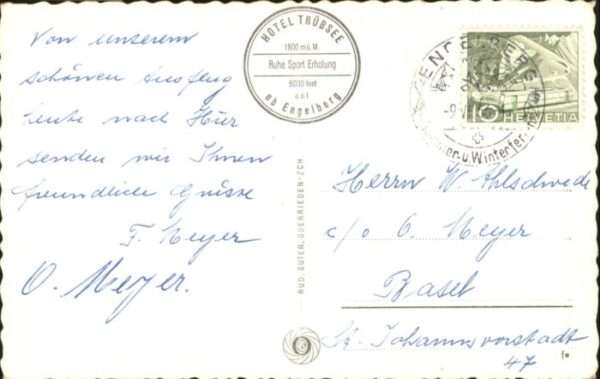 Von unserem
schönen Ausflug
heute nach Hier
senden wir Ihnen
freundliche Grüsse
F. Meyer
O. Meyer.
HOTEL TRÜBSEE
1800 m ü. M.
Ruhe Sport Erholung
6000 feet
a.s.l.
ob Engelberg
RUD. SUTER, OBERRIEDEN-ZCH.
ENGELBERG
u. Winterfer
10
HELVETIA
Herrn W. Ahlschwede
c/o O. Meyer
Basel
St. Johannvorstadt
47